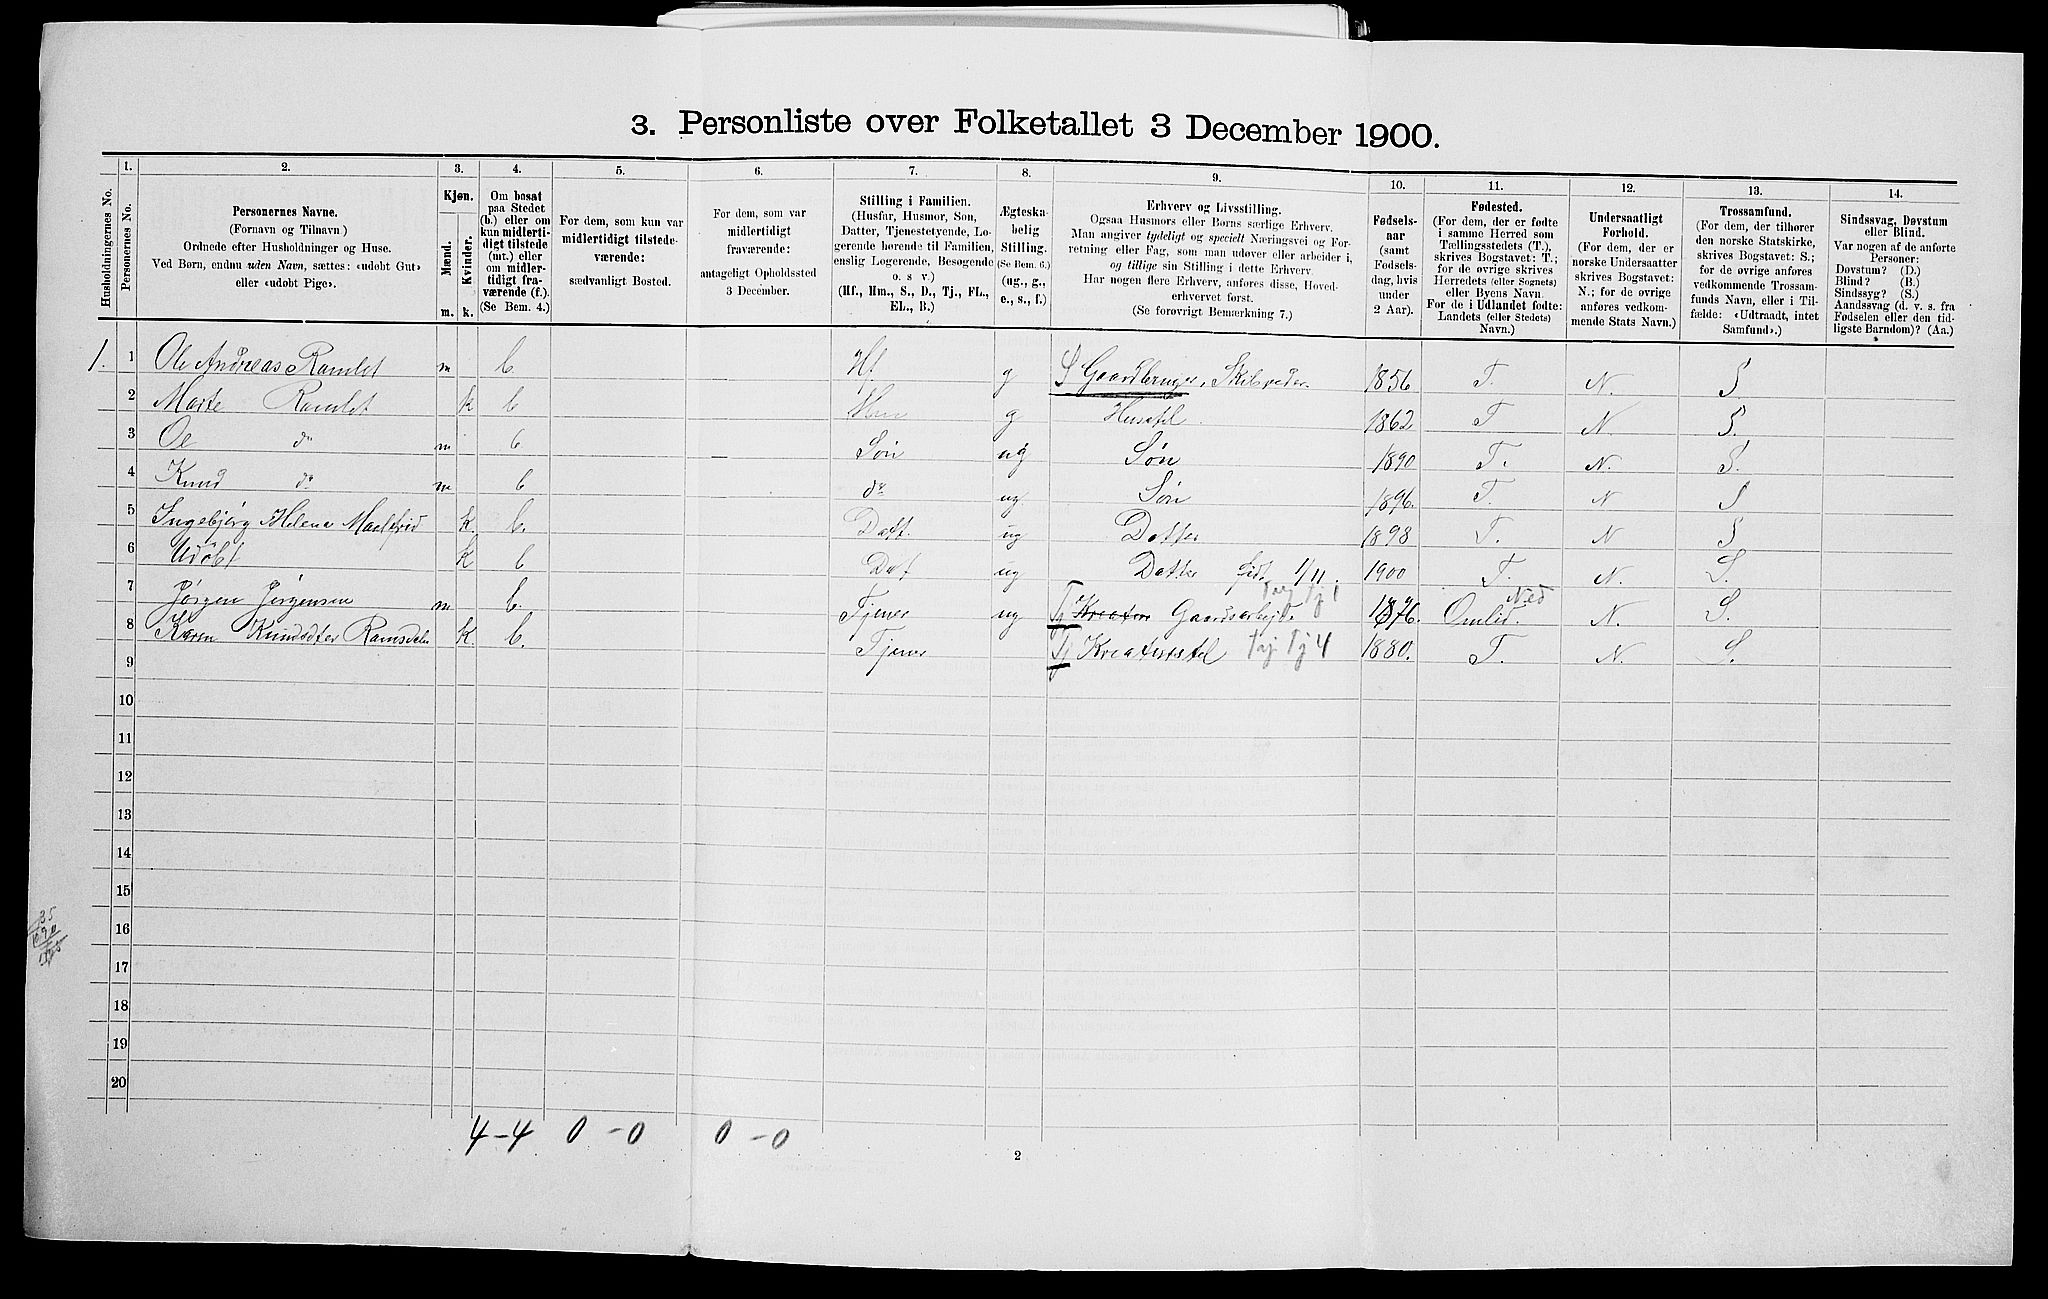 3. Personliste over Folketallet 3 December 1900.
1. 2. 3. 4. 5. 6. 7. 8. 9. 10. 11. 12. 13. 14.
Husholdningernes No.
Personernes No.
Personernes Navne.
(Fornavn og Tilnavn)
Ordnede efter Husholdninger og Huse.
Ved Børn, endnu uden Navn, sættes: «udøbt Gut»
eller «udøbt Pige».
Kjøn.
Mænd.
Kvinder.
m. k.
Om bosat
paa Stedet
(b.) eller om
kun midlerti-
digt tilstede
(mt.) eller
om midler-
tidigt fra-
værende (f.)
(Se Bem. 4.)
For dem, som kun var
midlertidigt tilstede-
værende:
sædvanligt Bosted.
For dem, som var
midlertidigt
fraværende:
antageligt Opholdssted
3 December.
Stilling i Familien.
(Husfar, Husmor, Søn,
Datter, Tjenestetyende, Lo-
gerende hørende til Familien,
enslig Logerende, Besøgende
o. s v.)
(Hf., Hm., S., D., Tj., FL.,
EL., B.)
Ægteska-
belig
Stilling.
(Se Bem. 6.)
(ug., g.,
e., s., f.)
Erhverv og Livsstilling.
Ogsaa Husmors eller Børns særlige Erhverv.
Man angiver tydeligt og specielt Næringsvei og For-
retning eller Fag, som man udøver eller arbeider i,
og tillige sin Stilling i dette Erhverv.
Har nogen flere Erhverv, anføres disse, Hoved-
erhvervet først.
(Se forøvrigt Bemærkning 7.)
Fødsels-
aar
(samt
Fødsels-
dag, hvis
under
2 Aar).
Fødested.
(For dem, der er fødte
i samme Herred som
Tællingsstedets (T.),
skrives Bogstavet: T.;
for de øvrige skrives
Herredets (eller Sognets)
eller Byens Navn.
For de i Udlandet fødte:
Landets (eller Stedets)
Navn.)
Undersaatligt
Forhold.
(For dem, der er
norske Undersaatter
skrives Bogstavet:
N.; for de øvrige
anføres vedkom-
mende Stats Navn.)
Trossamfund.
(For dem, der tilhører
den norske Statskirke,
skrives Bogstavet: S.;
for de øvrige anføres
vedkommende Trossam-
funds Navn, eller i Til-
fælde: «Udtraadt, intet
Samfund».)
Sindssvag, Døvstum
eller Blind.
Var nogen af de anførte
Personer:
Døvstum? (D.)
Blind? (B.)
Sindssyg? (S.)
Aandssvag (d. v. s. fra
Fødselen eller den tid-
ligste Barndom)? (Aa.)
1. 1 Ole Andreas Ramlet m b. Hf g S Gaardbruger, 1856 T. N. S.
2 Marte Ramlet k b Hm g Husstel. 1862 T N. S.
3 Ole do m b Søn ug Søn 1890 T. N. S.
4 Knud do m b do ug. Søn 1896. T. N S
5 Ingebjørg Helena k b. Datt. ug Datter 1898 T. N S
6 Udøbt k b Dat ug Datter født 1/11. 1900 T. N. S.
7 Jørgen Jørgensen m b. Tjener ug Tj Kreatur Gaardsarbejde 1876. Omlid. N. S.
8 Karen Knudsdter Ramsdalen k b. Tjener Tj Kreaturstel Tj 4 1880. T. N. S.
9
10
11
12
13
14
15
16
17
18
19
20
4 – 4 0 – 0 0 – 0
2